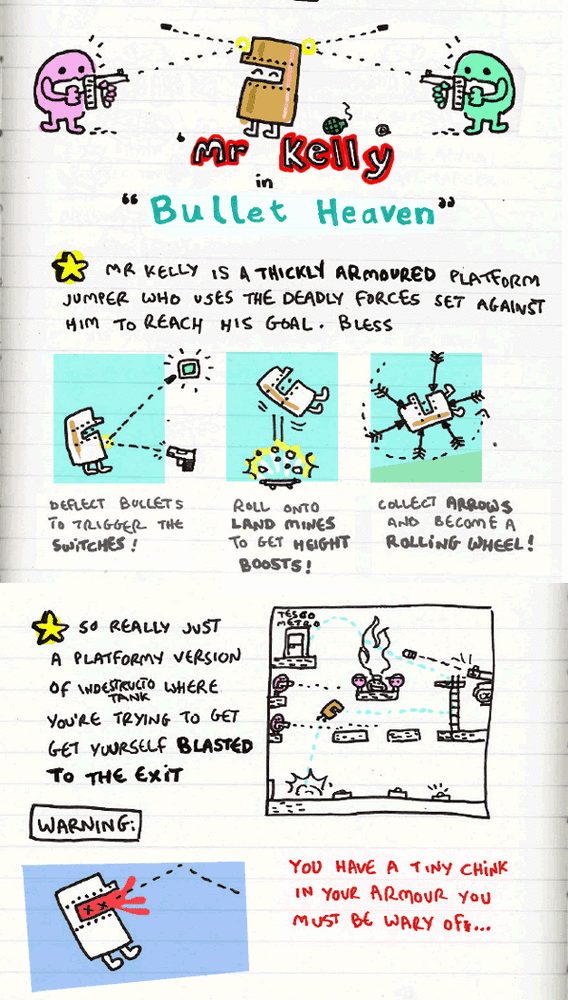 'Mr Kelly
in
"Bullet Heaven"
MR KELLY IS A THICKLY ARMOURED PLATFORM
JUMPER WHO USES THE DEADLY FORCES SET AGAINST
HIM TO REACH HIS GOAL. BLESS
DEFLECT BULLETS
TO TRIGGER THE
SWITCHES!
ROLL ONTO
LAND MINES
TO GET HEIGHT
BOOSTS!
COLLECT ARROWS
AND BECOME A
ROLLING WHEEL!
SO REALLY JUST
A PLATFORMY VERSION
OF INDESTRUCTO TANK WHERE
YOU'RE TRYING TO GET
GET YOURSELF BLASTED
TO THE EXIT
TESCO
METRO
WARNING:
YOU HAVE A TINY CHINK
IN YOUR ARMOUR YOU
MUST BE WARY OF...